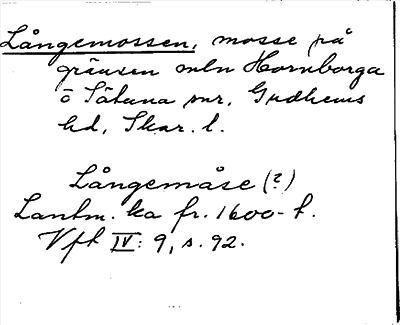 Långemossen, mosse på
gränsen mln Hornborga
o Sätuna snr, Gudhems
hd, Skar. l.
Långemåse (?)
Lantm. ka fr. 1600-t.
Vft IV: 9, s. 92.